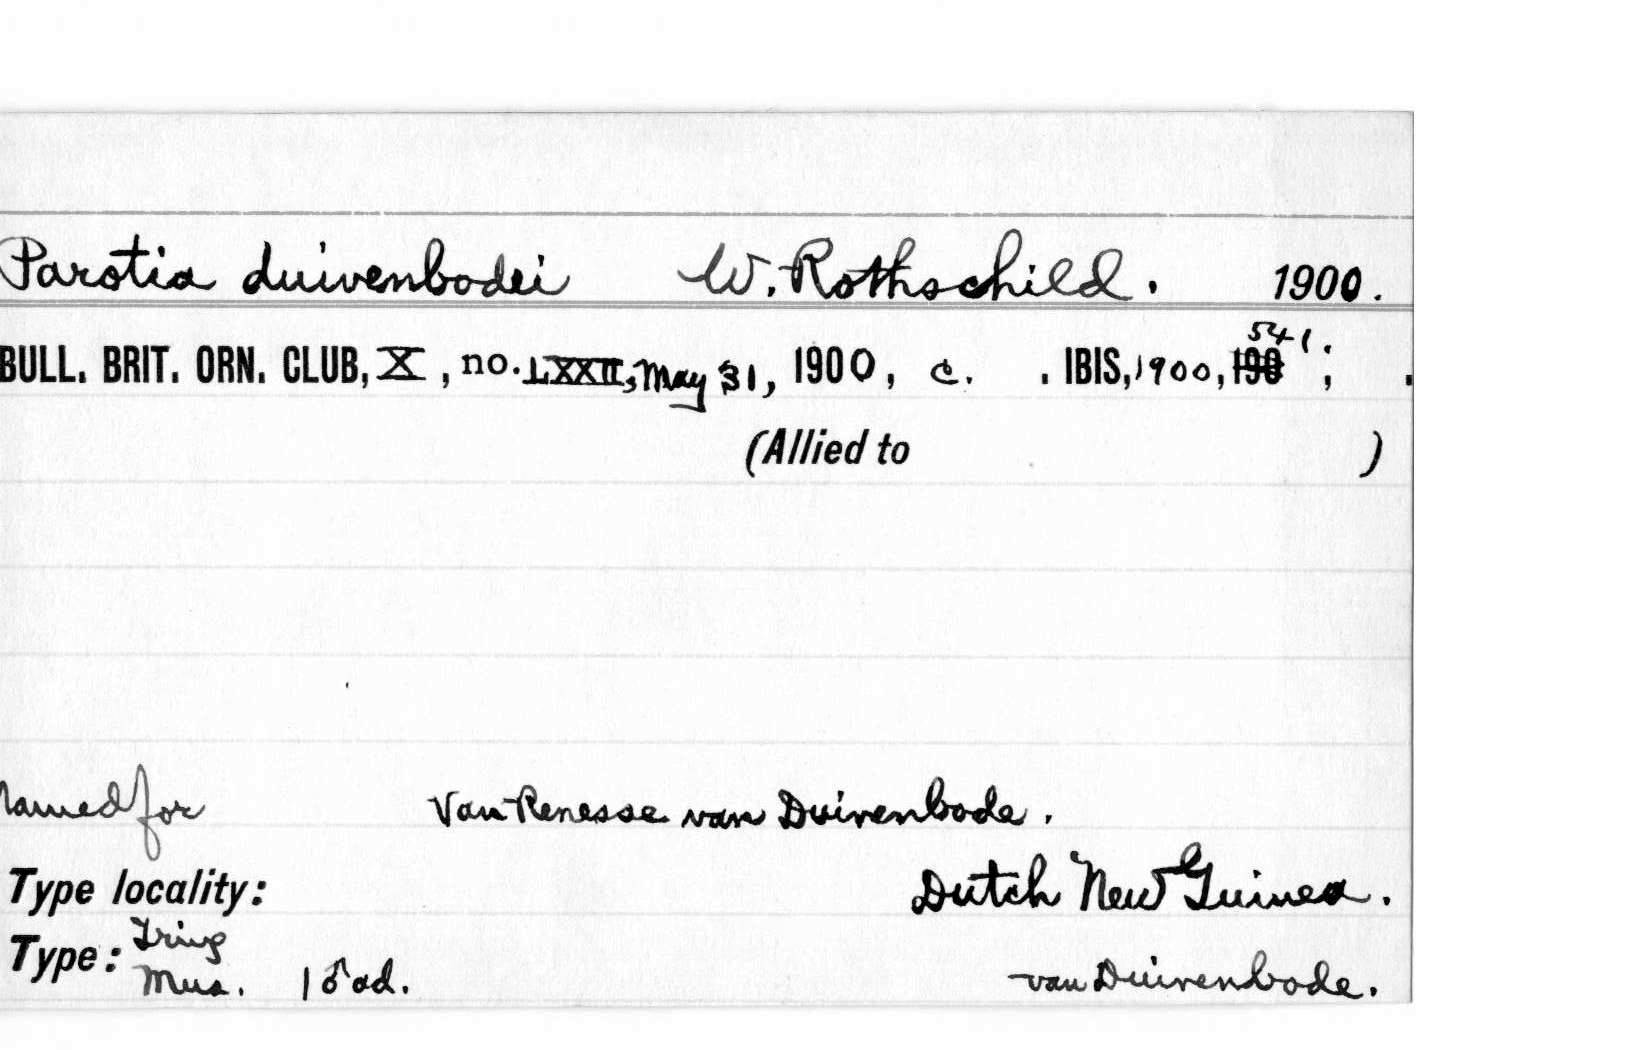 Parotia duivenbodei W. Rothschild. 1900.
BULL. BRIT. ORN. CLUB, X, no. LXXII, May 31, 1900, c. . IBIS, 1900, 190 541; ; .
(Allied to )
Named for Van Renesse van Duivenbode.
Type locality: Dutch New Guinea.
Type: Tring Mus. 1 ♂ ad. van Duivenbode.